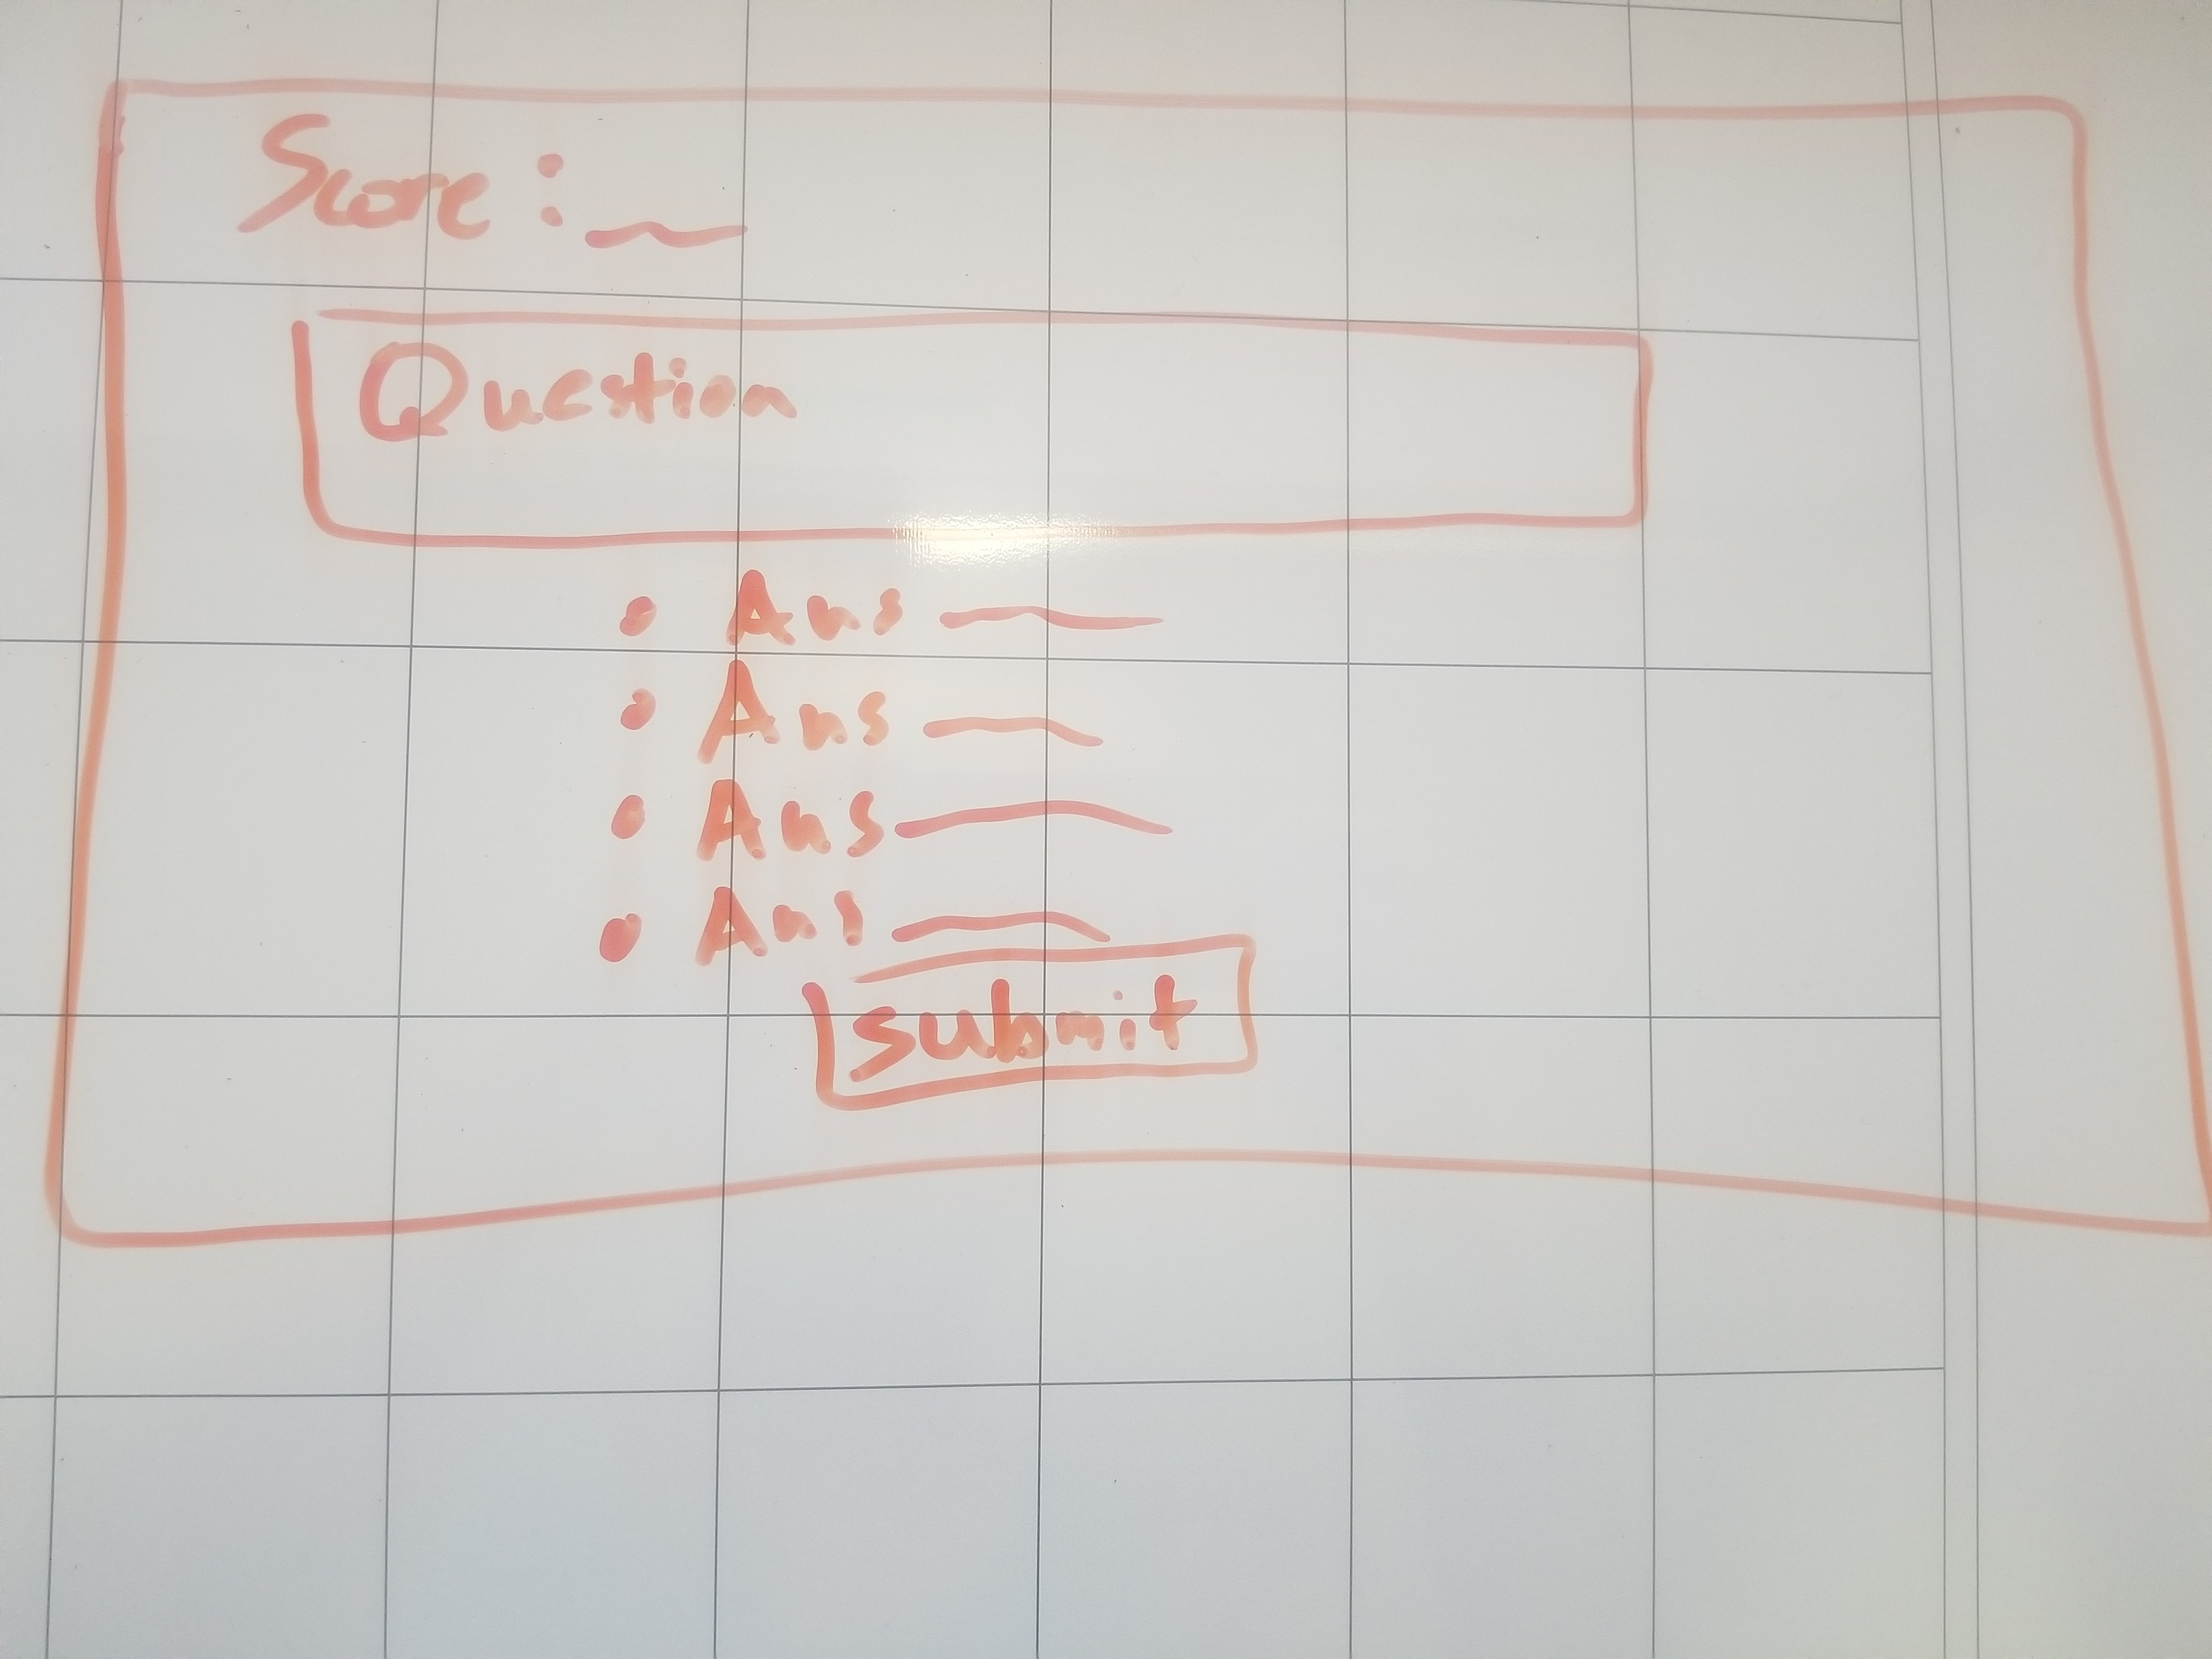 Score:
Question
• Ans
• Ans
• Ans
• Ans
submit